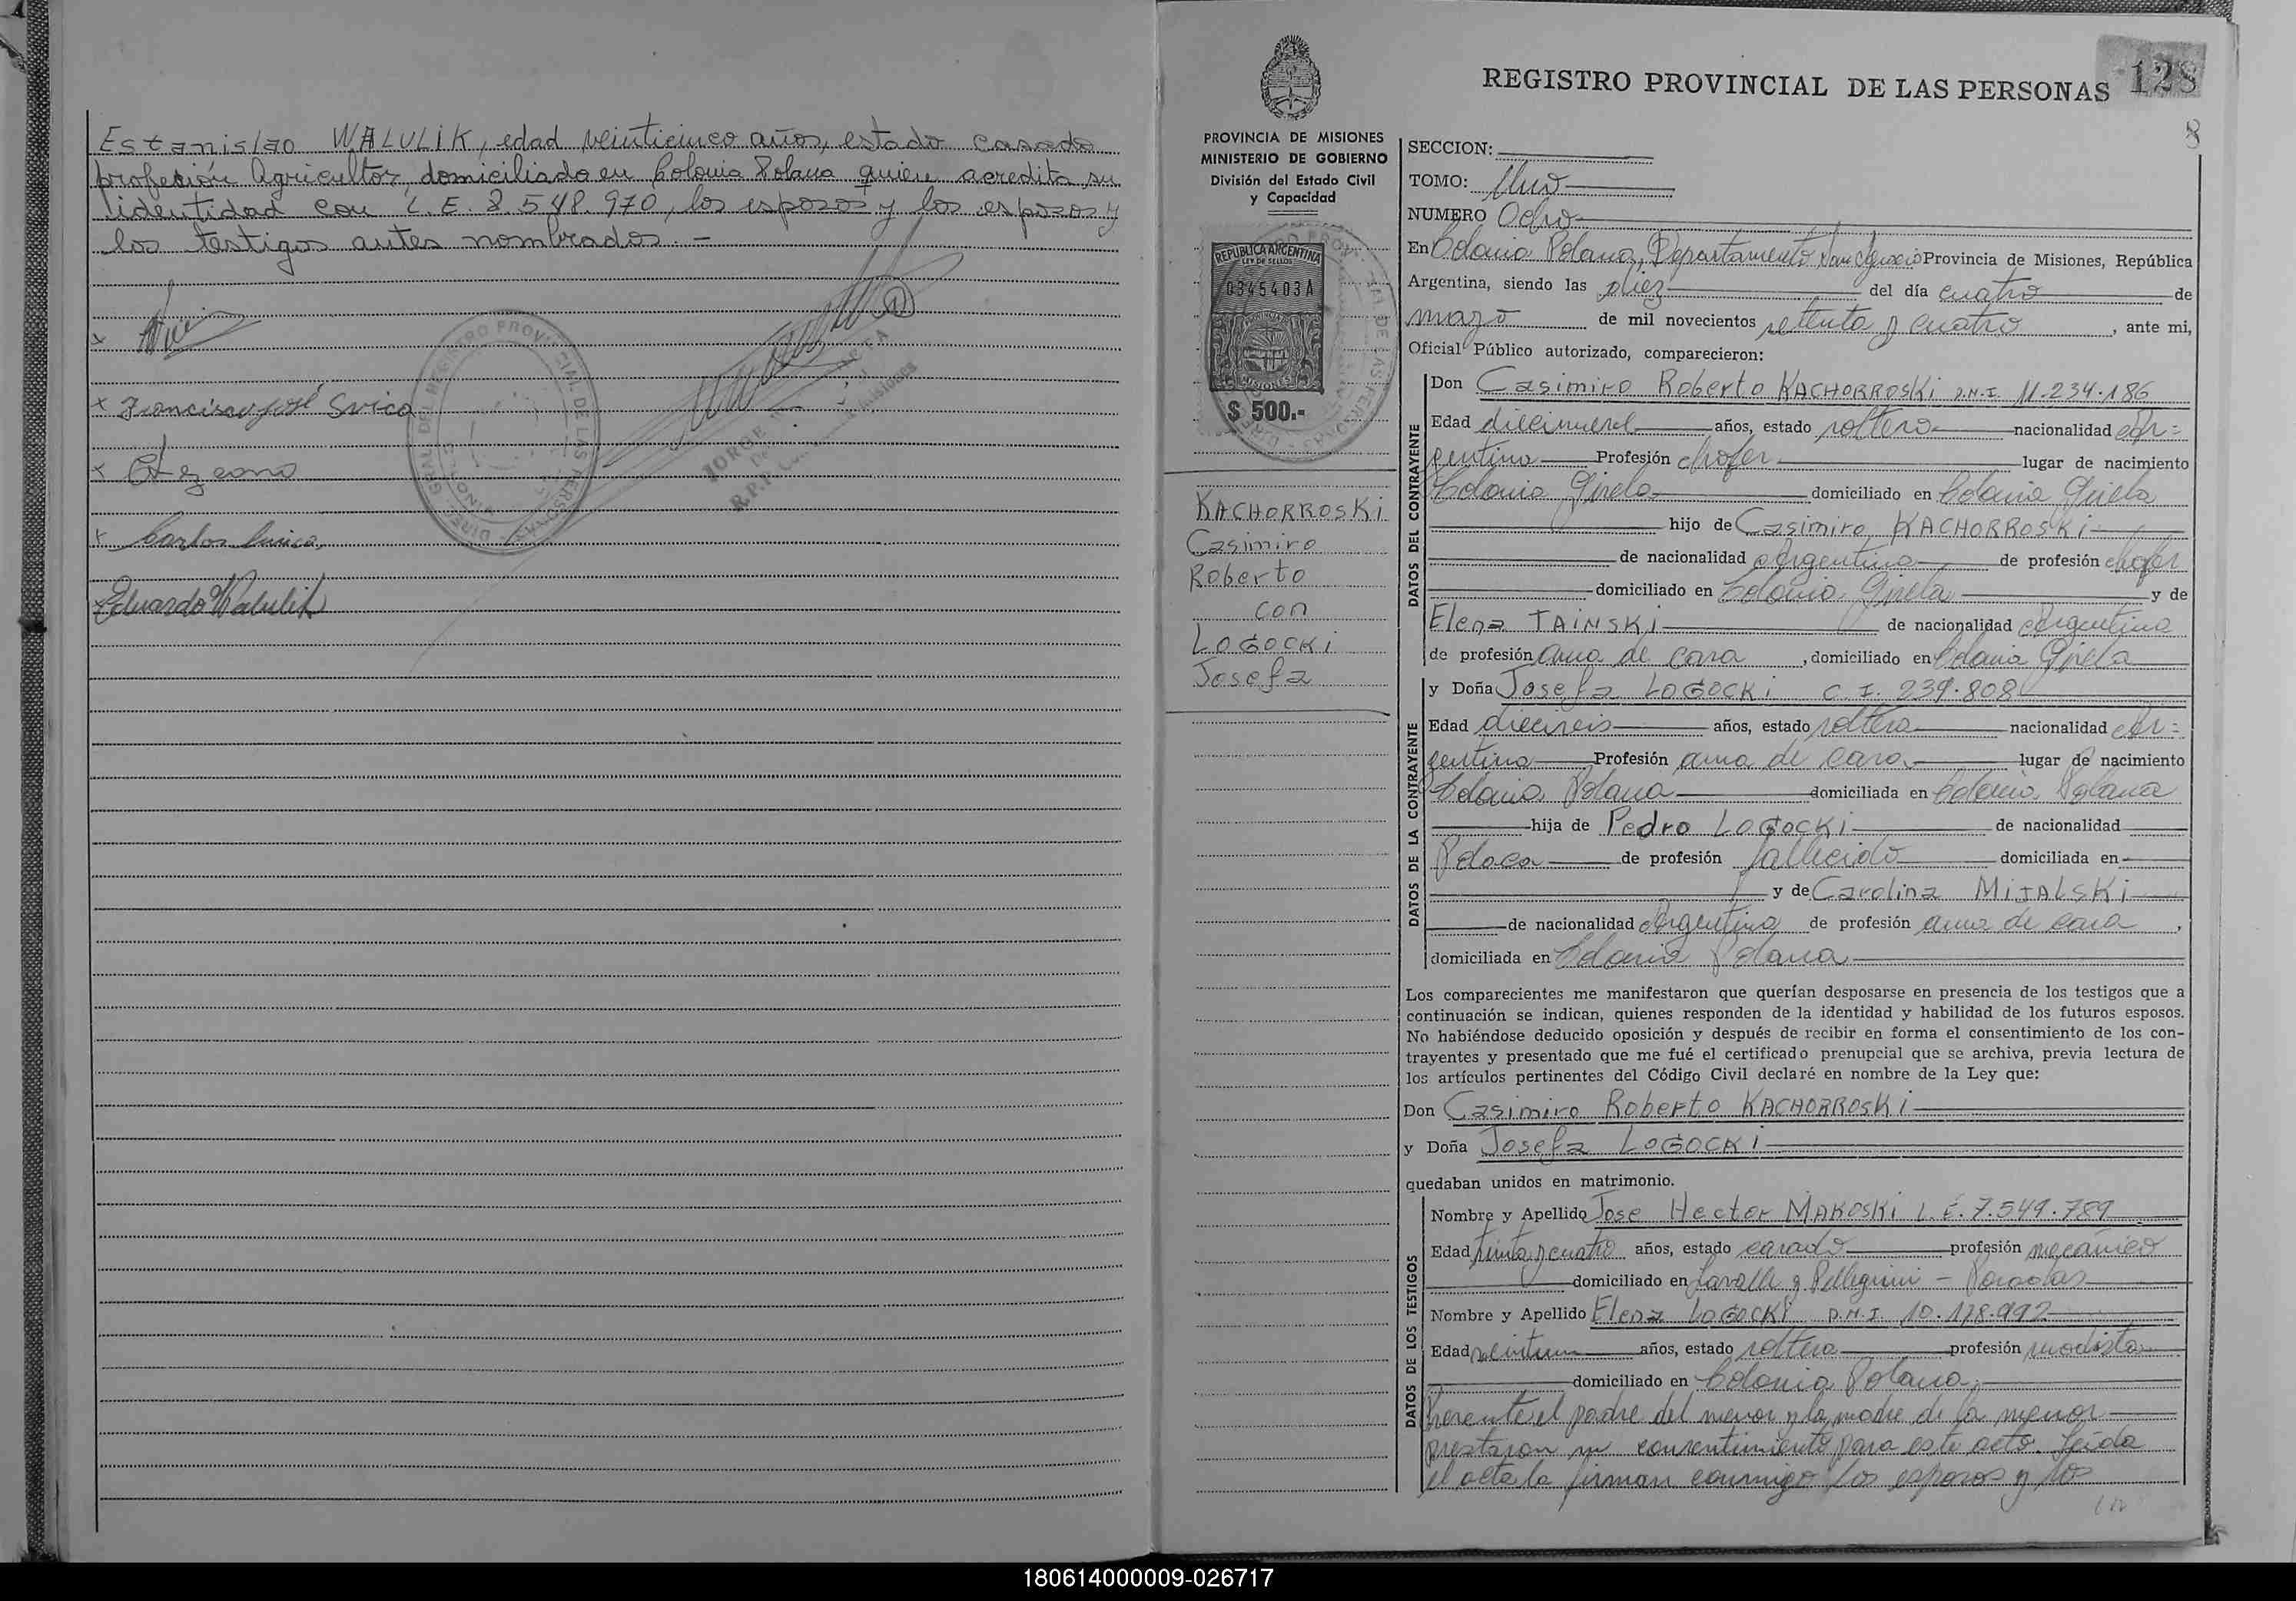 Estanislao WALULIK, edad veinticinco años, estado casado
profesión Agricultor, domiciliado en Colonia Polana quien acredita su
identidad con L.E. 8.548.970, los esposos y los esposos y
los testigos antes nombrados. -
x
x Francisco José
x
x Carlos
x Eduardo Walulik
DIREC. GRAL. DEL REGISTRO PROVINCIAL DE LAS PERSONAS
JORGE
R.P.P. Misiones
128
REGISTRO PROVINCIAL DE LAS PERSONAS
8
PROVINCIA DE MISIONES
MINISTERIO DE GOBIERNO
División del Estado Civil
y Capacidad
REPUBLICA ARGENTINA
LEY DE SELLOS
0345403A
MISIONES
$ 500.-
KACHORROSKi
Casimiro
Roberto
con
LOGOCKi
Josefa
SECCION:
TOMO: Uno
NUMERO Ocho
En Colonia Polana, Departamento San Ignacio Provincia de Misiones, República
Argentina, siendo las diez del día cuatro de
marzo de mil novecientos setenta y cuatro, ante mi,
Oficial Público autorizado, comparecieron:
DATOS DEL CONTRAYENTE
Don Casimiro Roberto KACHORROSKi D.N.I. 11.234.186
Edad diecinueve años, estado soltero nacionalidad Ar=
gentino Profesión chofer lugar de nacimiento
Colonia Gisela domiciliado en Colonia Gisela
hijo de Casimiro KACHORROSKi
de nacionalidad Argentina de profesión chofer
domiciliado en Colonia Gisela y de
Elena TAINSKi de nacionalidad Argentina
de profesión ama de casa, domiciliado en Colonia Gisela
DATOS DE LA CONTRAYENTE
y Doña Josefa LOGOCKi C.I. 239.808
Edad dieciseis años, estado soltera nacionalidad Ar=
gentina Profesión ama de casa lugar de nacimiento
Colonia Polana domiciliada en Colonia Polana
hija de Pedro LOGOCKi de nacionalidad
Polaca de profesión fallecido domiciliada en
y de Carolina MIJALSKi
de nacionalidad Argentina de profesión ama de casa,
domiciliada en Colonia Polana
Los comparecientes me manifestaron que querían desposarse en presencia de los testigos que a
continuación se indican, quienes responden de la identidad y habilidad de los futuros esposos.
No habiéndose deducido oposición y después de recibir en forma el consentimiento de los con-
trayentes y presentado que me fué el certificado prenupcial que se archiva, previa lectura de
los artículos pertinentes del Código Civil declaré en nombre de la Ley que:
Don Casimiro Roberto KACHORROSKi
y Doña Josefa LOGOCKi
quedaban unidos en matrimonio.
DATOS DE LOS TESTIGOS
Nombre y Apellido Jose Hector MAKOSKi L.E. 7.549.789
Edad treinta y cuatro años, estado casado profesión mecánico
domiciliado en Lavalle y Pellegrini - Posadas
Nombre y Apellido Elena LOGOCKi D.N.I. 10.178.992
Edad veintiun años, estado soltera profesión modista
domiciliado en Colonia Polana
Presente el padre del menor y la madre de la menor
prestaron su consentimiento para este acto. Leída
el acta la firman conmigo los esposos y los
180614000009-026717